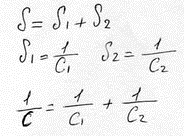 S = S₁ + S₂
S₁ = 1/C₁ S₂ = 1/C₂
1/C = 1/C₁ + 1/C₂